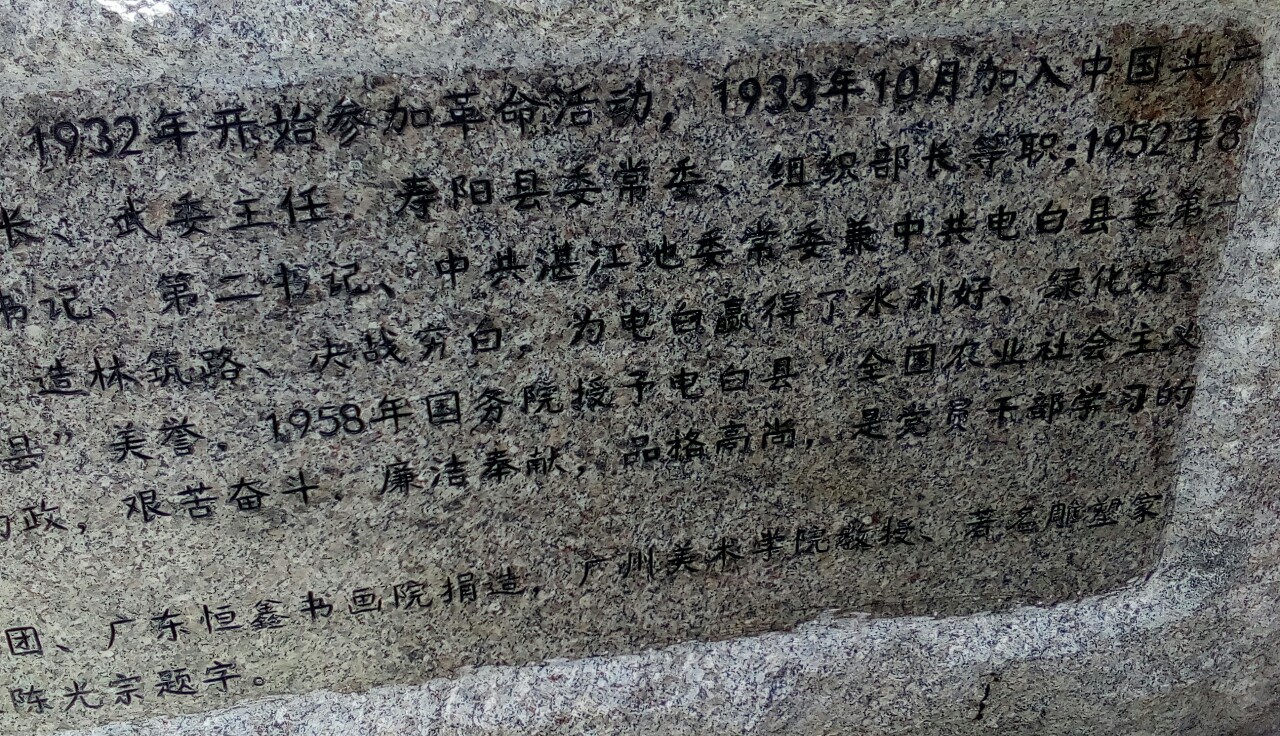 1932年开始参加革命活动，1933年10月加入中国共产
长、武委主任、寿阳县委常委、组织部长等职；1952年8
书记、第二书记、中共湛江地委常委兼中共电白县委第一
造林筑路、决战穷白，为电白赢得了水利好、绿化好、
县”美誉，1958年国务院授予电白县“全国农业社会主义
政，艰苦奋斗、廉洁奉献，品格高尚，是党员干部学习的
团、广东恒鑫书画院捐造，广州美术学院教授、著名雕塑家
陈光宗题字。